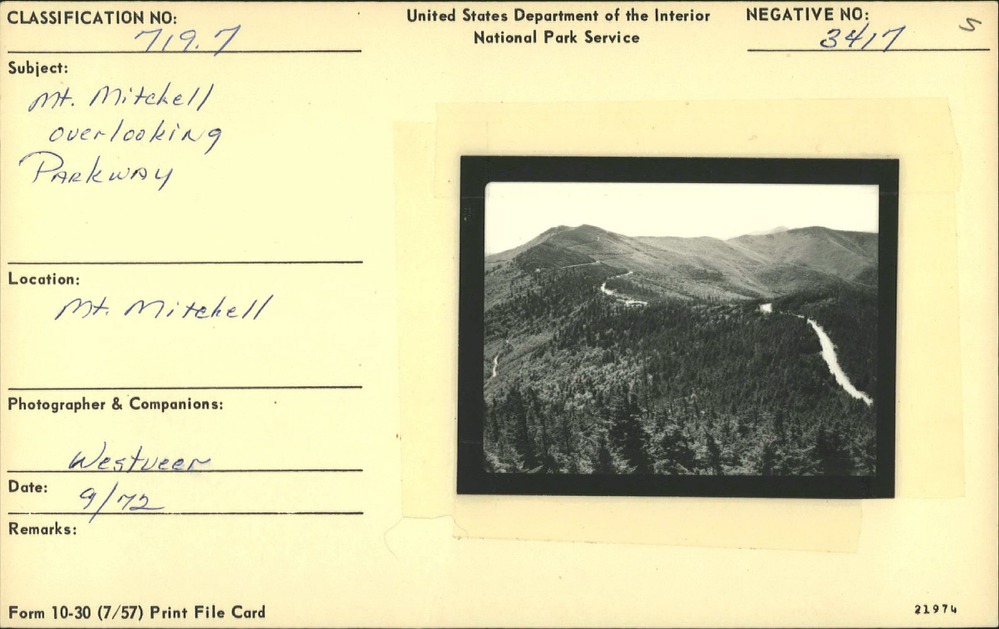 CLASSIFICATION NO:
719.7
United States Department of the Interior
National Park Service
NEGATIVE NO:
3417
5
Subject:
Mt. Mitchell
overlooking
Parkway
Location:
Mt. Mitchell
Photographer & Companions:
Westveer
Date:
9/72
Remarks:
Form 10-30 (7/57) Print File Card
21974